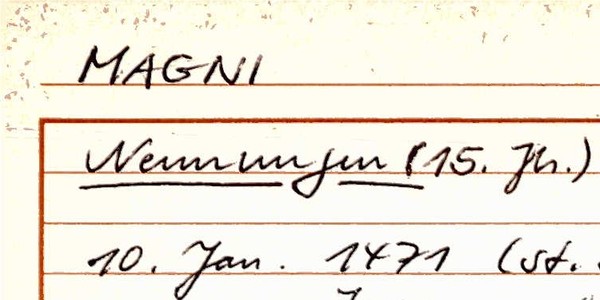 MAGNI
Nennungen (15. Jh.)
10. Jan. 1471 (st.